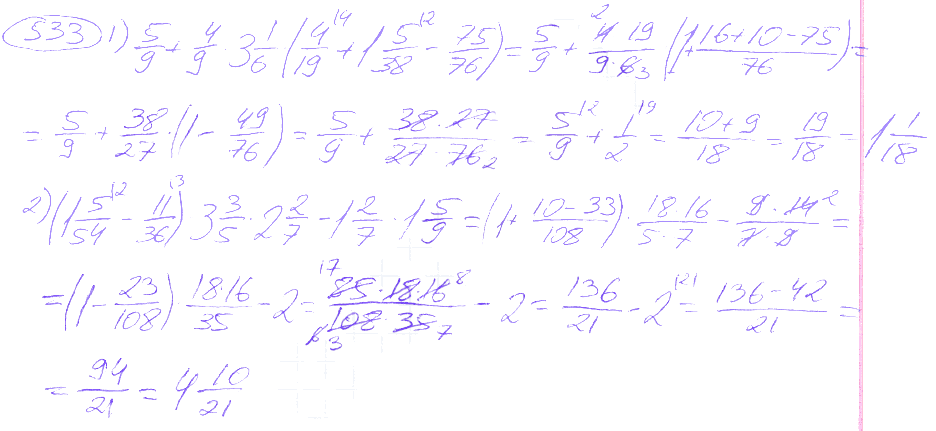 533 1) 5/9 + 4/9 · 3 1/6 (4/19 + 1 5/38 - 75/76) = 5/9 + 4 · 19/9 · 6 (1 + 16+10-75/76) =
= 5/9 + 38/27 · (1 - 49/76) = 5/9 + 38 · 27/27 · 76 = 5/9 + 1/2 = 10+9/18 = 19/18 = 1 1/18
2) (1 5/54 - 11/36) 3 3/5 · 2 2/7 - 1 2/7 · 1 5/9 = (1 + 10-33/108) · 18·16/5·7 - 9 · 14/7 · 9 =
= (1 - 23/108) 18·16/35 - 2 = 85 · 18 · 16/108 · 35 - 2 = 136/21 - 2 = 136-42/21 =
= 94/21 = 4 10/21